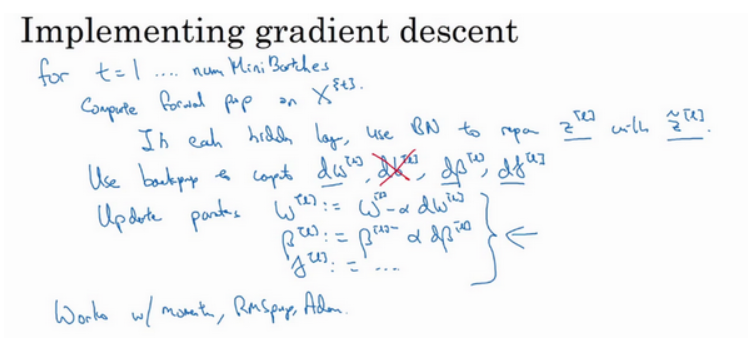 Implementing gradient descent
for t=1 .... num Mini Batches
Compute forward prop on X^{t}.
In each hidden lay, use BN to repa z^[l] with z̃^[l].
Use backprop to compt dw^[l], db^[l], dβ^[l], dγ^[l]
Update partes w^[l] := w^[l] - α dw^[l]
β^[l] := β^[l] - α dβ^[l]
γ^[l] := ...
Works w/ momentum, RMSprop, Adam.